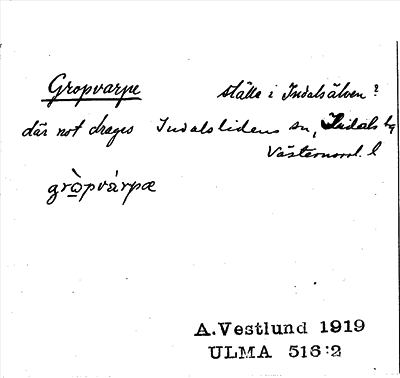 Gropvarpe ställe i Indalsälven?
där not drages Indalslidens sn, Indals by
Västernorrl. l
grò̱pvárpæ
A.Vestlund 1919
ULMA 516:2